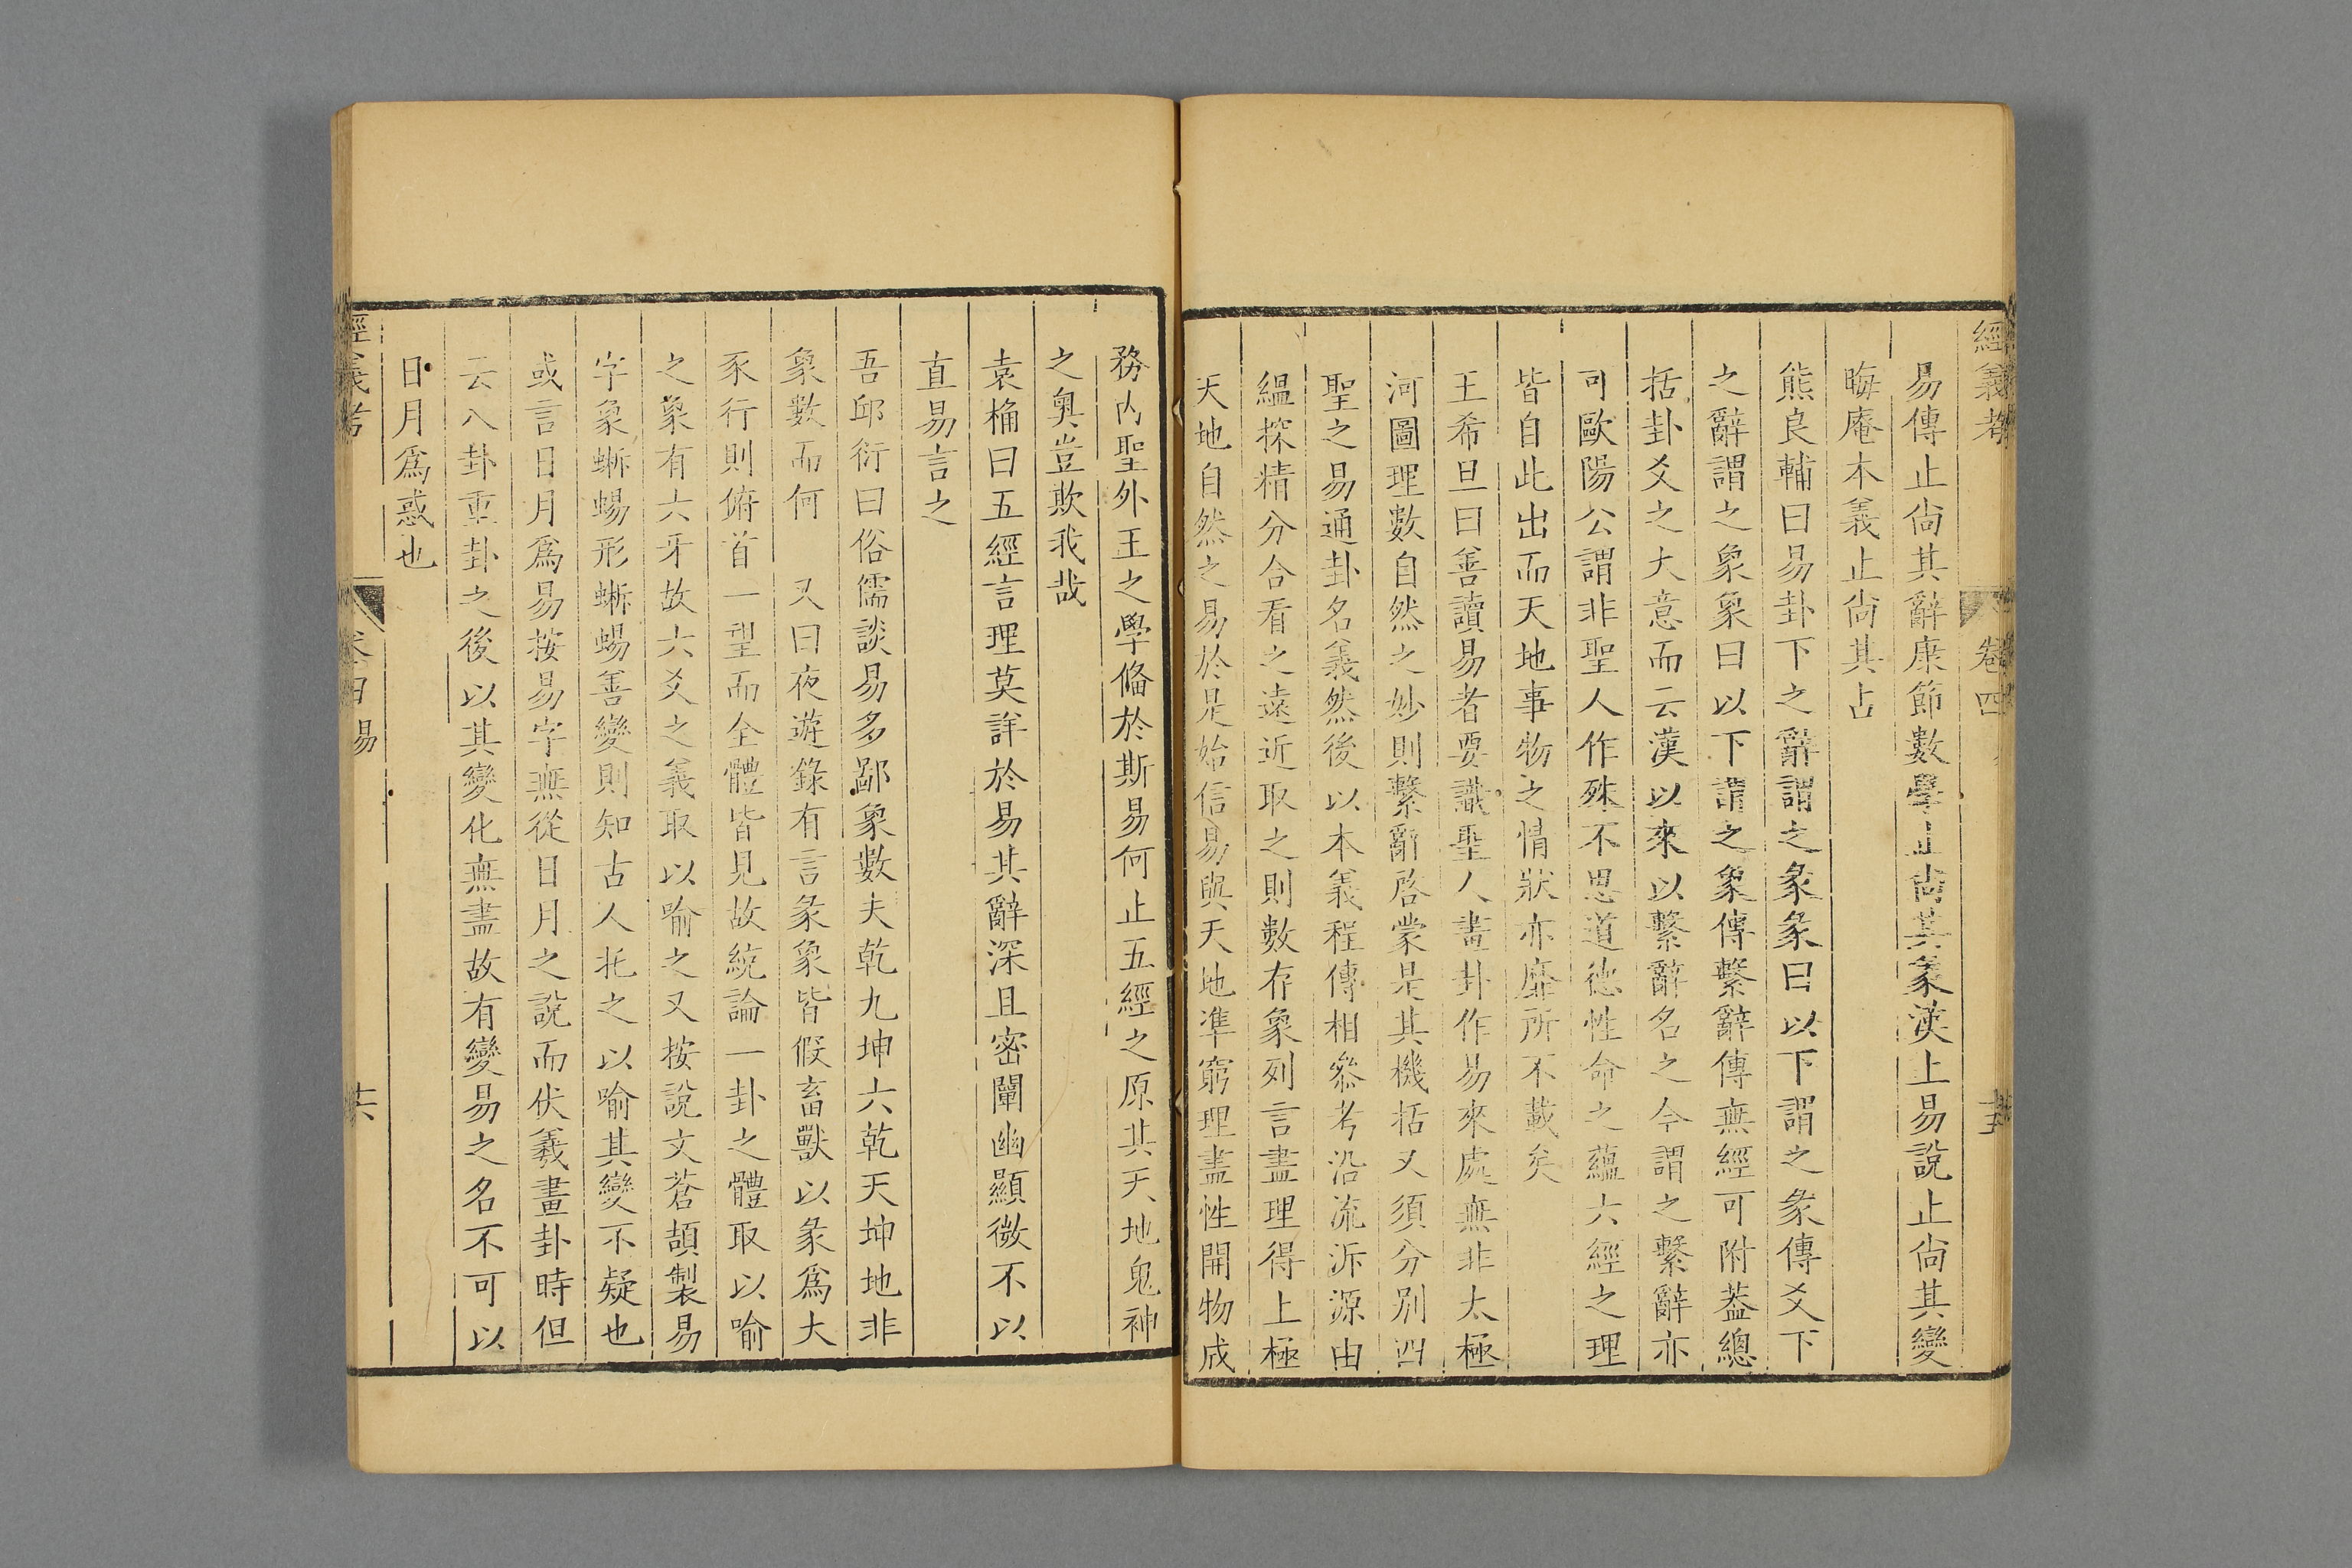 經義考 卷四
易傳止尙其辭康節數學止尙其象漢上易說止尙其變
晦庵本義止尙其占
熊良輔曰易卦下之辭謂之彖彖曰以下謂之彖傳爻下
之辭謂之象象曰以下謂之象傳繫辭傳無經可附葢總
括卦爻之大意而云漢以來以繫辭名之今謂之繫辭亦
可歐陽公謂非聖人作殊不思道德性命之蘊六經之理
皆自此出而天地事物之情狀亦靡所不載矣
王希旦曰善讀易者要識聖人畫卦作易來處無非太極
河圖理數自然之妙則繫辭啓蒙是其機括又須分別四
聖之易通卦名義然後以本義程傳相叅考沿流泝源由
縕探精分合看之遠近取之則數存象列言盡理得上極
天地自然之易於是始信易與天地準窮理盡性開物成
務內聖外王之學備於斯易何止五經之原其天地鬼神
之奧豈欺我哉
袁桷曰五經言理莫詳於易其辭深且密闡幽顯微不以
直易言之
吾邱衍曰俗儒談易多鄙象數夫乾九坤六乾天坤地非
象數而何 又曰夜遊錄有言彖象皆假畜獸以彖爲大
豕行則俯首一望而全體皆見故統論一卦之體取以喻
之象有六牙故六爻之義取以喻之又按說文蒼頡製易
字象蜥蜴形蜥蜴善變則知古人托之以喻其變不疑也
或言日月爲易按易字無從日月之說而伏羲畫卦時但
云八卦重卦之後以其變化無盡故有變易之名不可以
日月爲惑也
經義考 卷四 易 十六